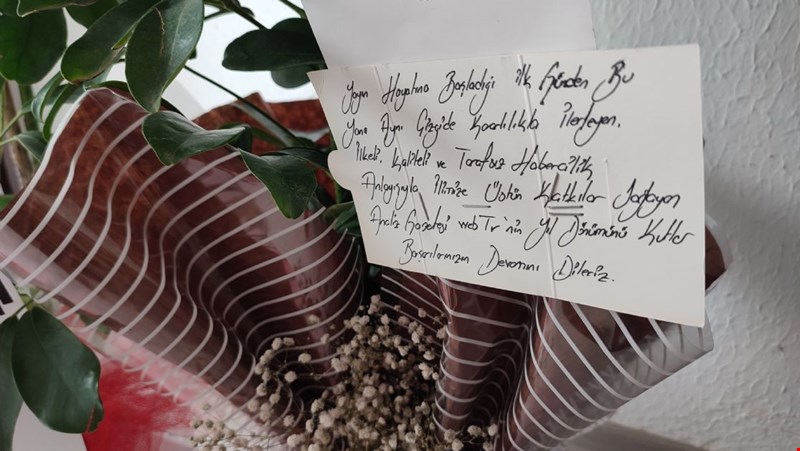 Yayın Hayatına Başladığı ilk Günden Bu
Yana Aynı Çizgide Kararlılıkla İlerleyen.
İlkeli. Kaliteli ve Tarafsız Habercilik
Anlayışıyla İlimize Üstün Katkılar Sağlayan
Analiz Gazetesi web Tv'nin Yıl Dönümünü Kutlar
Başarılarınızın Devamını Dileriz.